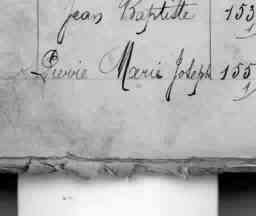 Jean Baptiste 153
Pierre Marie Joseph 155